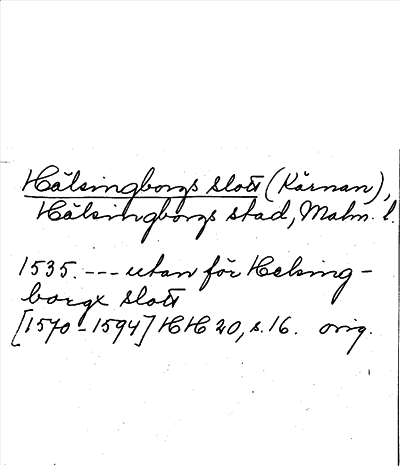 Hälsingborgs slott (Kärnan),
Hälsingborgs stad, Malm. l.
1535. --- utan för Helsing-
borgx slott
[1570-1594] HH 20, s. 16. orig.